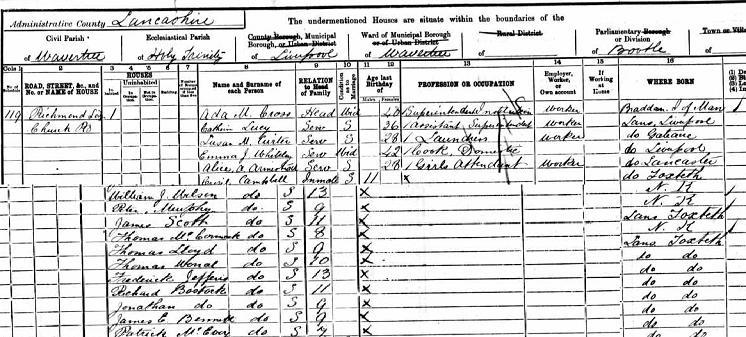 Administrative County Lancashire The undermentioned Houses are situate within the boundaries of the
Civil Parish Ecclesiastical Parish County Borough, Municipal Borough, or Urban District Ward of Municipal Borough or of Urban District Rural District Parliamentary Borough or Division Town or
of Wavertree of Holy Trinity of Liverpool of Wavertree of of Bootle of
Cols 1 2 3 4 5 6 7 8 9 10 11 12 13 14 15 16
No. of Schedule ROAD, STREET, &c., and No. or NAME of HOUSE HOUSES Inhabited Uninhabited In Occupation Not in Occupation Building Name and Surname of each Person RELATION to Head of Family Condition as to Marriage Age last Birthday of Males Females PROFESSION OR OCCUPATION Employer, Worker, or Own account If Working at Home WHERE BORN
119 Richmond 1 Ada M. Cross Head Wid Superintendent Institution Worker Braddan I of Man
Church Rd Lucy Serv S 36 Assistant Superintendent Worker Lancs Liverpool
Susan M. Serv S 28 Laundress Worker do
Emma J Serv Wid 42 Cook, Domestic do Liverpool
Alice A. Armstrong Serv S 28 Girls Attendant Worker do Lancaster
Cecil Campbell Inmate S 11 × do Toxteth
William J. Watson do S 13 × N. K
Peter Murphy do S 9 × N. K
James Scott do S 11 × Lancs Toxteth
Thomas McCormack do S 8 × N. K
Thomas Lloyd do S 9 × Lancs Toxteth
Thomas do S 10 × do do
Frederick do S 13 × do do
Richard Bostock do S 11 × do do
Jonathan do do S 9 × do do
James E. Bennett do S 9 × do do
Patrick do S 7 × do do